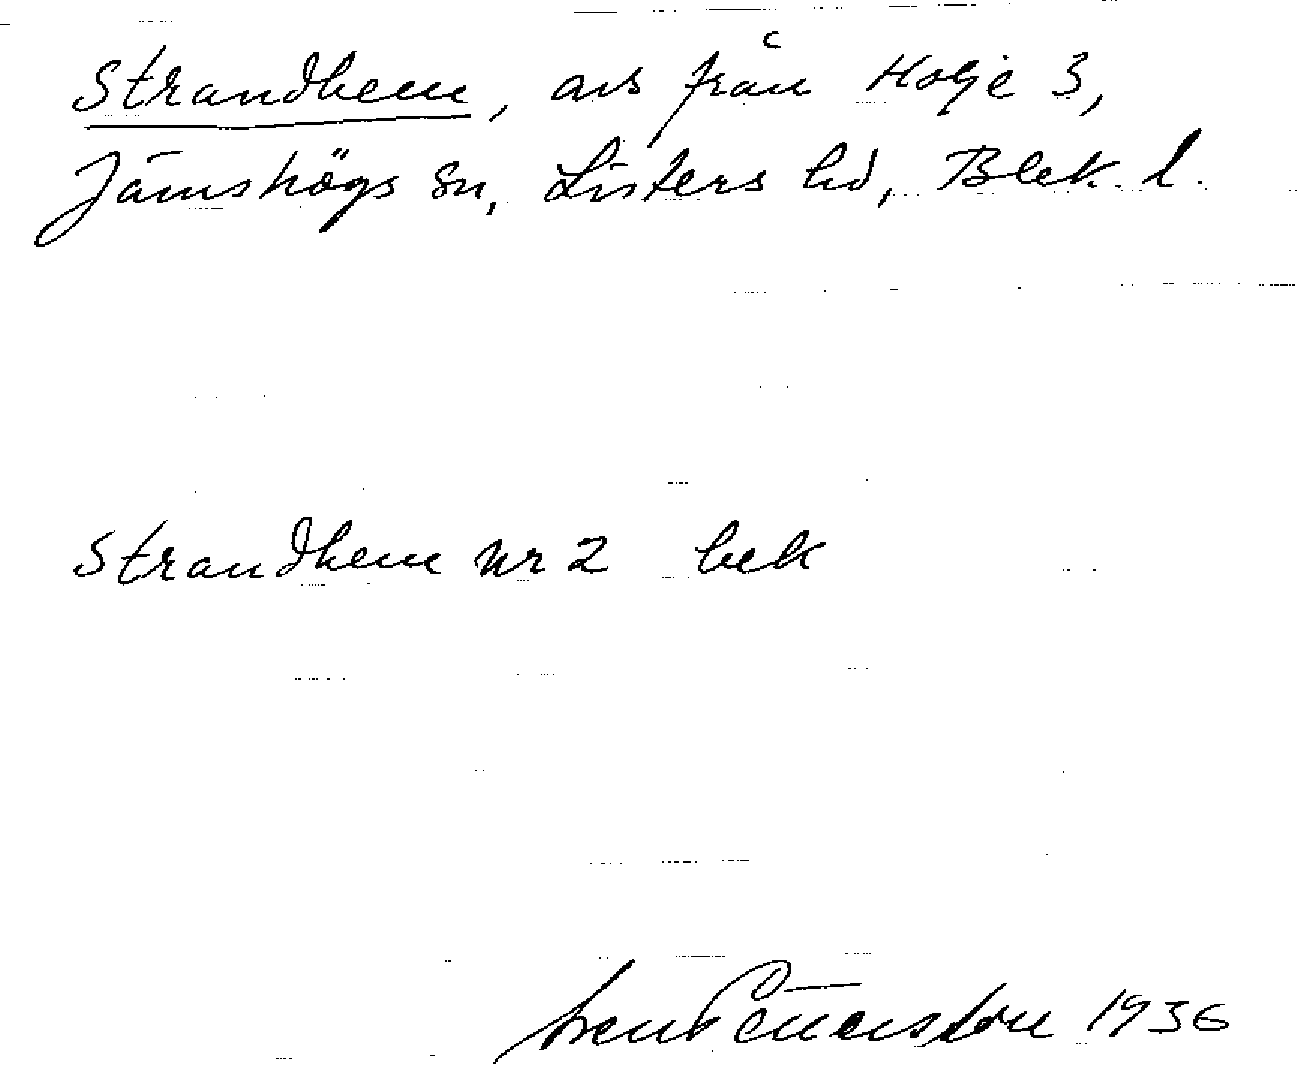 Strandhem, avs från Holje 3,
Jämshögs sn, Listers hd, Blek. l.
Strandhem nr 2 bek
Pettersson 1936